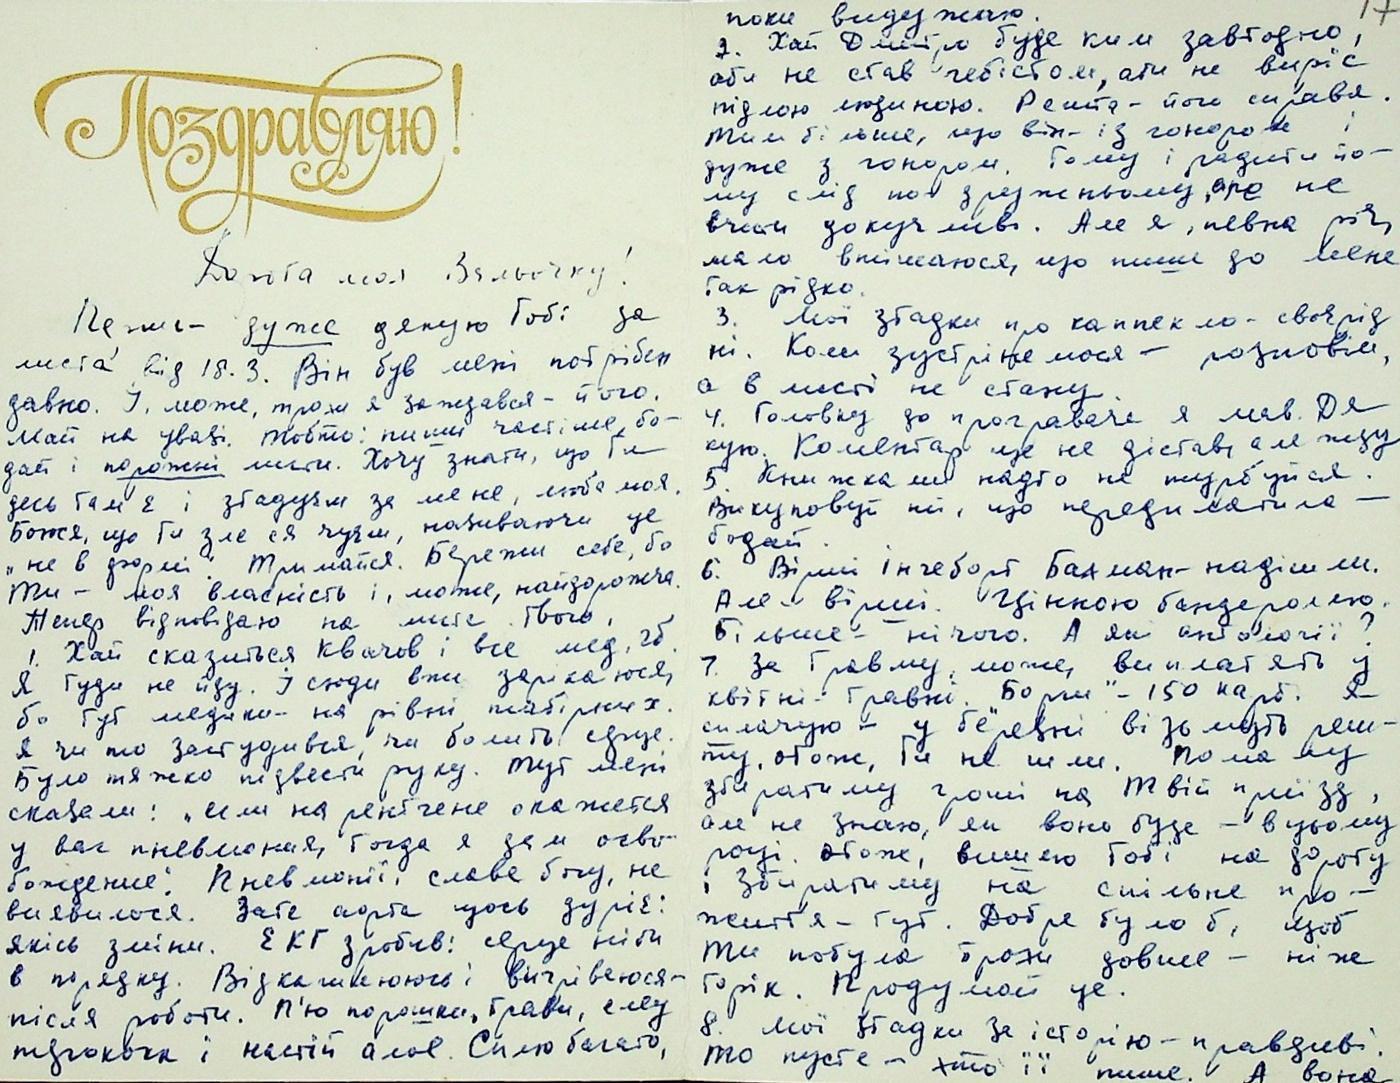 Поздравляю!
Дорога моя Вальочку!
Перш – дуже дякую Тобі за
листа від 18.3. Він був мені потрібен
давно. І, може, трохи я заждався – його.
Май на увазі. Тобто: пиши частіше, бо-
дай і порожні листи. Хочу знати, що Ти
десь там є і згадуєш за мене, люба моя.
Боюся, що Ти зле ся чуєш, називаючи це
„не в формі”. Тримайся. Бережи себе, бо
Ти – моя власність і, може, найдорожча.
Тепер відповідаю на листа Твого.
1. Хай сказиться Квачов і все мед. гб.
Я туди не йду. І сюди вже зарікаюся,
бо тут медики – на рівні табірних.
Я чи то застудився, чи болить серце.
Було тяжко підвести руку. Тут мені
сказали: „если на рентгене окажется
у вас пневмония, тогда я дам осво-
бождение”. Пневмонії, слава богу, не
виявилося. Зате аорта щось дуріє:
якісь зміни. ЕКГ зробив: серце ніби
в порядку. Відкашлююсь і вигріваюся –
після роботи. П'ю порошки, трави, смалю
і настій алое. Силю багато,
поки видержаю.
17
2. Хай Дмитро буде ким завгодно,
аби не став чебістом, аби не виріс
підлою людиною. Решта – його справа.
Тим більше, що він – із гонором і
дуже з гонором. Тому і радити йо-
му слід по дружньому, а не
вчити докучливо. Але я, певна річ,
мало втішаюся, що пише до мене
так рідко.
3. Мої згадки про каппекло – своєрід
ні. Коли зустрінемося – розповім,
а в листі не стану.
4. Головку до програвача я мав. Дя
кую. Коментар ще не дістав, але жду
5. Книжками надто не турбуйся.
Викуповуй ті, що передплатила –
бодай.
6. Вірші Інгеборг Бахман – надішли.
Але – вірші. Цінною бандеролею.
Більше – нічого. А які антології?
7. За травму, може, виплатять у
квітні – травні. „Борги” – 150 карб. Я –
сплачую – у березні візьмуть реш-
ту, отож, Ти не шли. Помалу
збиратиму гроші на Твій приїзд,
але не знаю, як воно буде – в цьому
році. Отож, вишлю Тобі на дорогу
і збиратиму на спільне про-
життя – тут. Добре було б, щоб
Ти побула трохи довше – ніж
торік. Продумай це.
8. Мої згадки за історію – правдиві.
То пусте – хто її пише. А вона